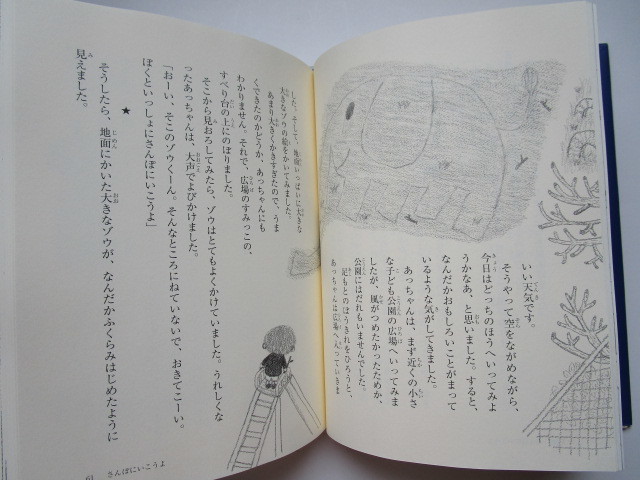 いい天気です。
そうやって空をながめながら、
今日はどっちのほうへいってみよ
うかなあ、と思いました。すると、
なんだかおもしろいことがまって
いるような気がしてきました。
あっちゃんは、まず近くの小さ
な子ども公園の広場へいってみま
したが、風がつめたかったためか、
公園にはだれもいませんでした。
足もとのぼうきれをひろうと、
あっちゃんは広場へ入っていきま
した。そして、地面いっぱいに大きな
大きなゾウの絵をかいてみました。
あまり大きくかきすぎたので、うま
くできたのかどうか、あっちゃんにも
わかりません。それで、広場のすみっこの、
すべり台の上にのぼりました。
そこから見おろしてみたら、ゾウはとてもよくかけていました。うれしくな
ったあっちゃんは、大声でよびかけました。
「おーい、そこのゾウくーん。そんなところにねていないで、おきてこーい。
ぼくといっしょにさんぽにいこうよ」
★
そうしたら、地面にかいた大きなゾウが、なんだかふくらみはじめたように
見えました。
61 さんぽにいこうよ